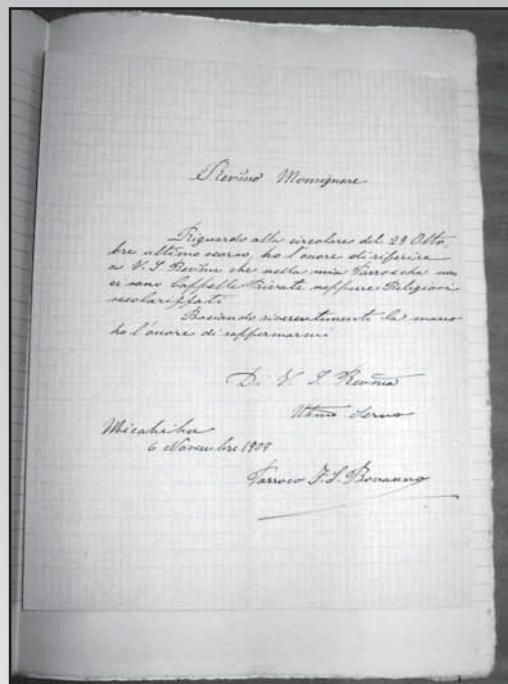 Revm̃o Monsignore
Riguardo alla circolare del 29 Otto-
bre ultimo scorso, ho l'onore di riferire
a V. S. Revm̃a che nella mia Parrocchia non
ci sono Cappelle Private neppure Religiosi
secolarizzati
Baciando riverentemente la mano
ho l'onore di raffermarmi
Di V. S. Revm̃a
Servo
Micabiba
6 Novembre 1909
Parroco F. S. Bonanno